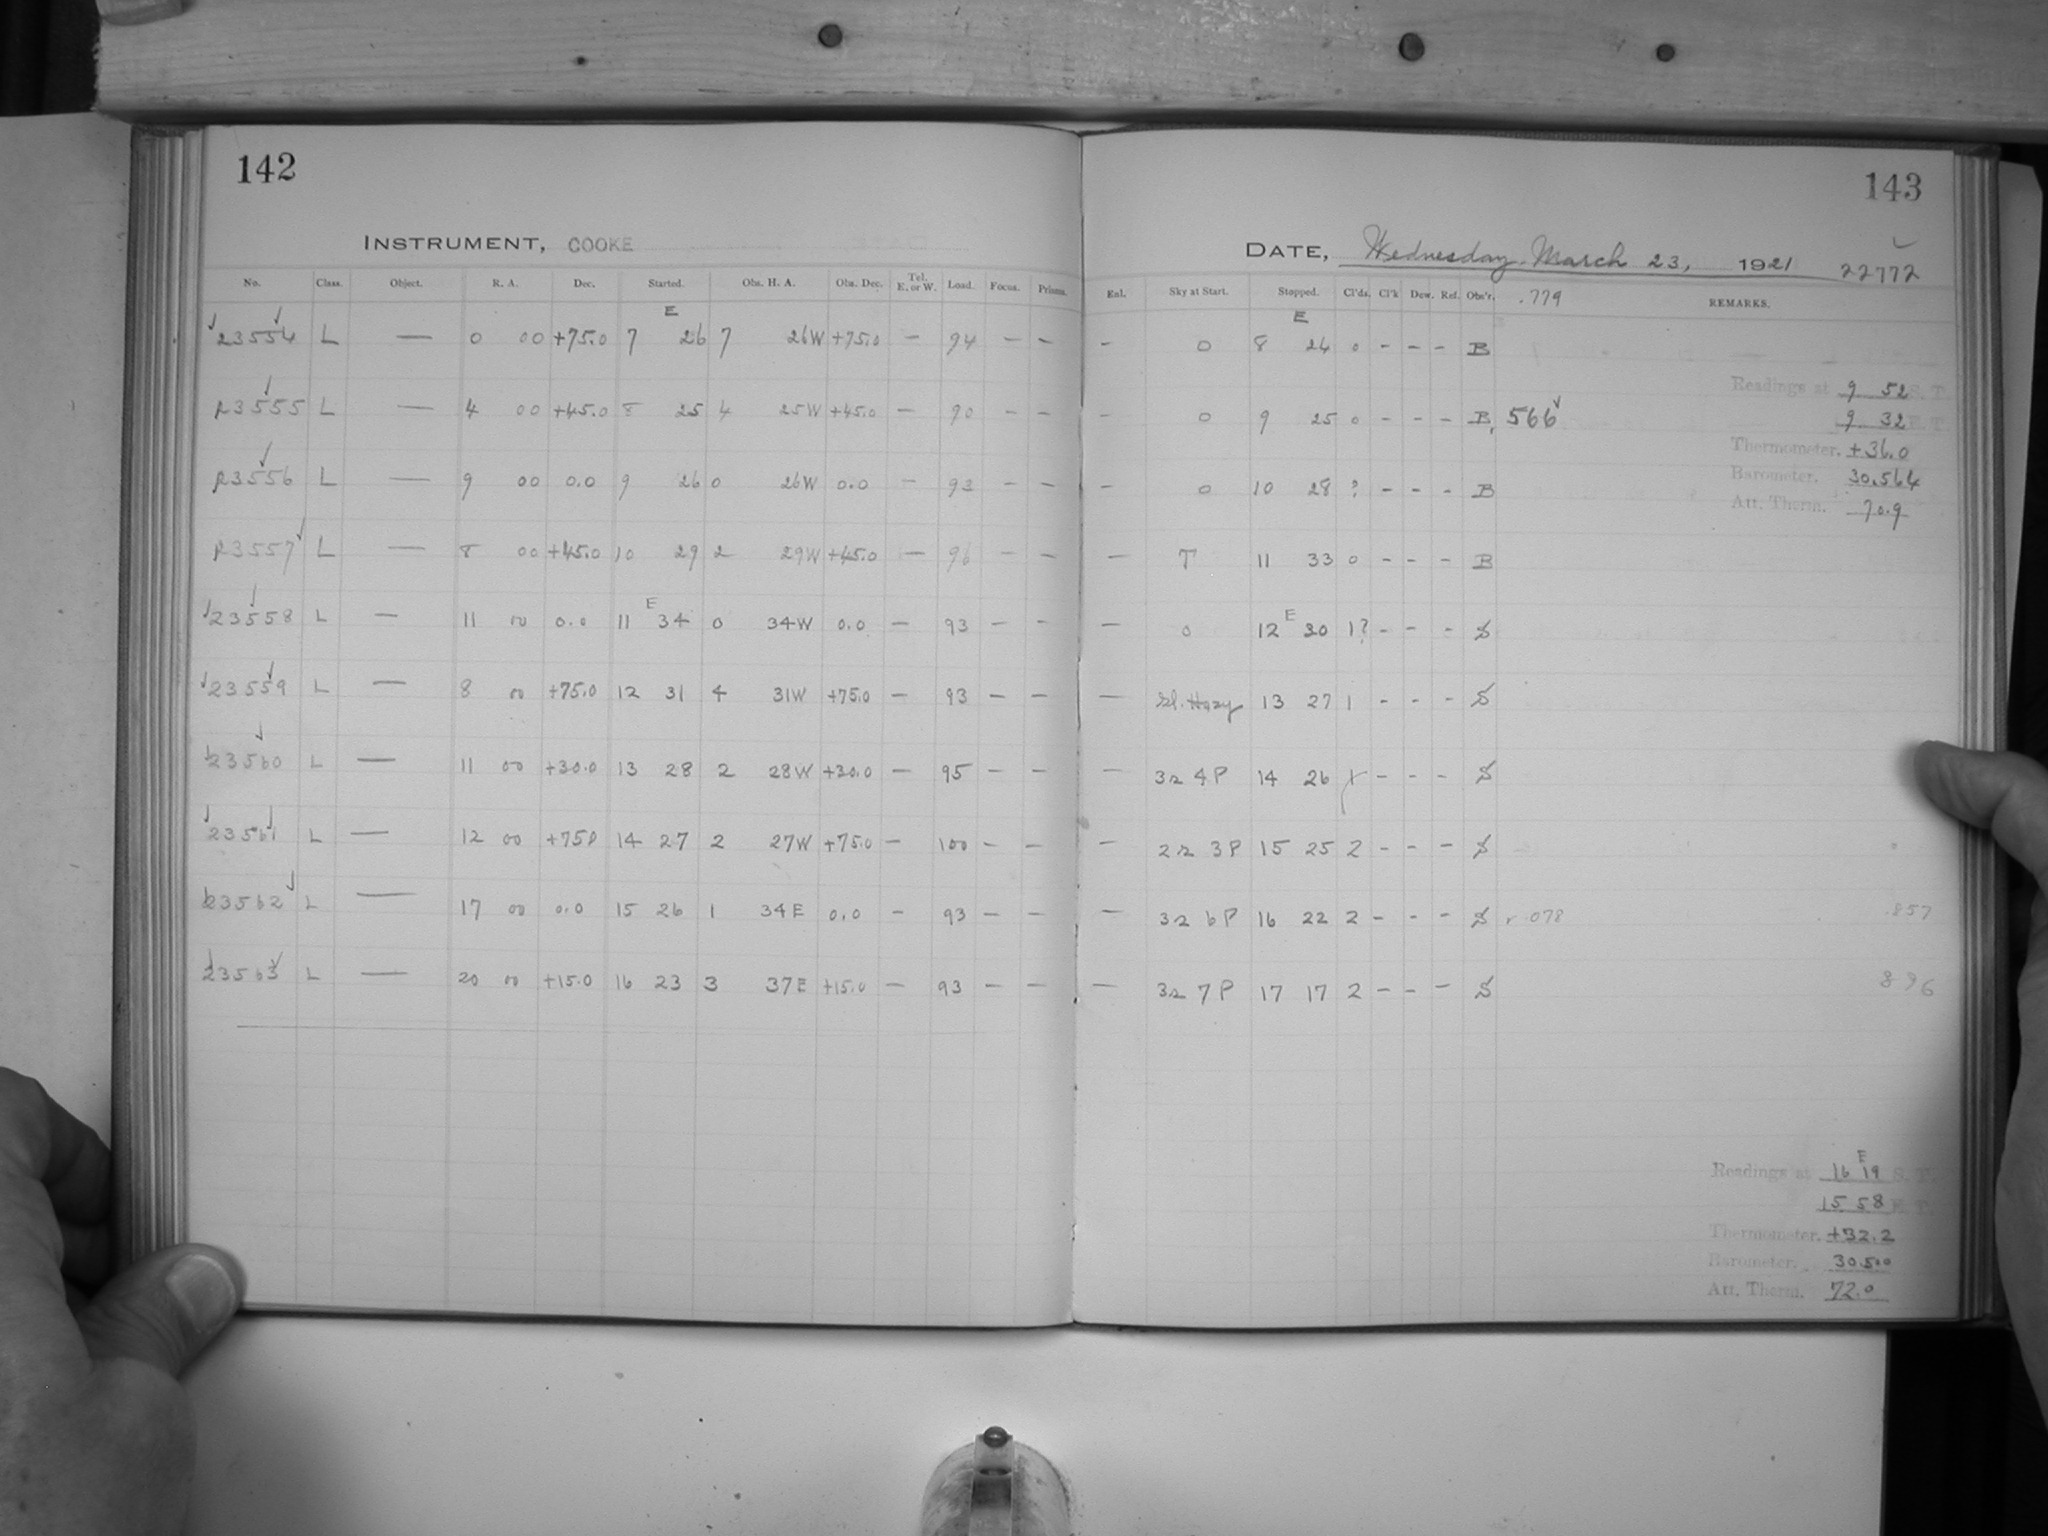 142
INSTRUMENT, COOKE
No. Class. Object. R. A. Dec. Started. Obs. H. A. Obs. Dec. Tel. E. or W. Load. Focus. Prisms.
E
23554 L — 0 00 +75.0 7 26 7 26W +75.0 — 94 — —
23555 L — 4 00 +45.0 8 25 4 25W +45.0 — 90 — —
23556 L — 9 00 0.0 9 26 0 26W 0.0 — 93 — —
23557 L — 8 00 +45.0 10 29 2 29W +45.0 — 96 — —
E
23558 L — 11 00 0.0 11 34 0 34W 0.0 — 93 — —
23559 L — 8 00 +75.0 12 31 4 31W +75.0 — 93 — —
23560 L — 11 00 +30.0 13 28 2 28W +30.0 — 95 — —
23561 L — 12 00 +75.0 14 27 2 27W +75.0 — 100 — —
23562 L — 17 00 0.0 15 26 1 34E 0.0 — 93 — —
23563 L — 20 00 +15.0 16 23 3 37E +15.0 — 93 — —
143
DATE, Wednesday. March 23, 1921 22772
Enl. Sky at Start. Stopped. Cl'ds. Cl'k Dew. Ref. Obs'r. .779 REMARKS.
E
— 0 8 24 0 - - - B
Readings at 9 52 S. T.
— 0 9 25 0 - - - B, 566
9 32 E. T.
Thermometer. +36.0
— 0 10 28 ? - - - B
Barometer. 30.564
Att. Therm. 70.9
— T 11 33 0 - - - B
E
— 0 12 30 1? - - - S
— Sl. Hazy 13 27 1 - - - S
— 32 4P 14 26 - - - S
— 22 3P 15 25 2 - - - S
— 32 6P 16 22 2 - - - S .078 .857
— 32 7P 17 17 2 - - - S 896
E
Readings at 16 19 S. T.
15 58 E. T.
Thermometer. +32.2
Barometer. 30.500
Att. Therm. 72.0